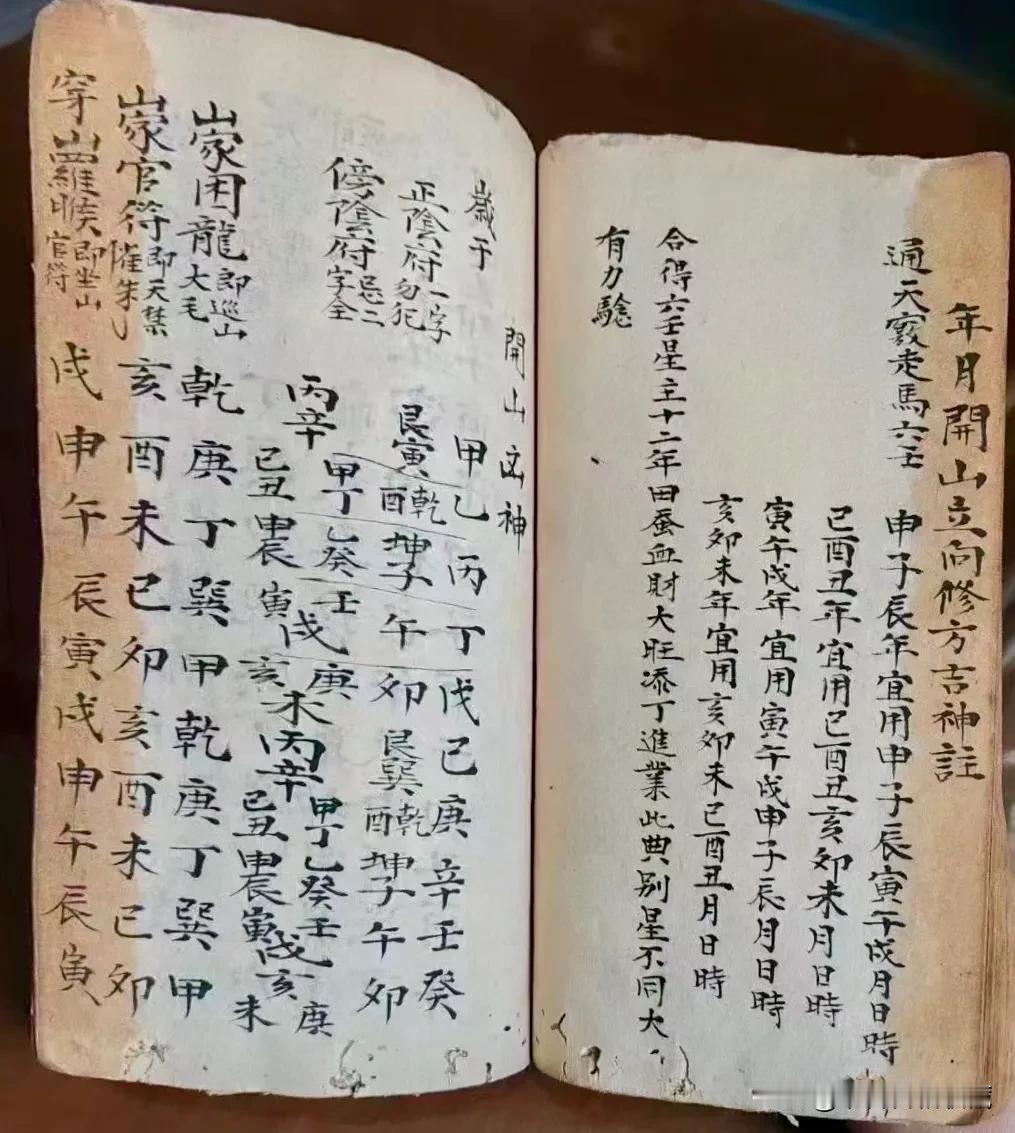 年月開山立向修方吉神註
通天竅走馬六壬
申子辰年宜用申子辰寅午戌月日時
巳酉丑年宜用巳酉丑亥卯未月日時
寅午戌年宜用寅午戌申子辰月日時
亥卯未年宜用亥卯未巳酉丑月日時
合得六壬星主十二年田蚕血財大旺添丁進業此典别星不同大
有力驗
開山凶神
歲干 甲乙丙丁戊己庚辛壬癸
正陰府一字勿犯 艮寅 乾酉 坤子 午 卯 艮巽 乾酉 坤子 午 卯
傍陰府忌二字全
丙辛 甲丁 乙癸 壬 庚 丙辛 甲丁 乙癸 壬 庚
己丑 申辰 寅戌 亥未 己丑 申辰 寅戌 亥未
山家困龍即巡山大毛 乾庚丁巽甲乾庚丁巽甲
山家官符即天禁催朱 亥酉未巳卯亥酉未巳卯
穿山羅睺即坐山官符 戌申午辰寅戌申午辰寅